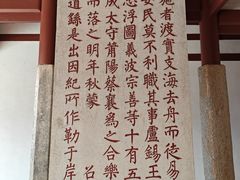 施者渡實支海去舟而徒易
安民莫不利職其事盧錫王
忠浮圖義波宗善等十有五
成太守莆陽蔡襄為之合樂
而落之明年秋蒙 召
道繇是出因紀所作勒于岸